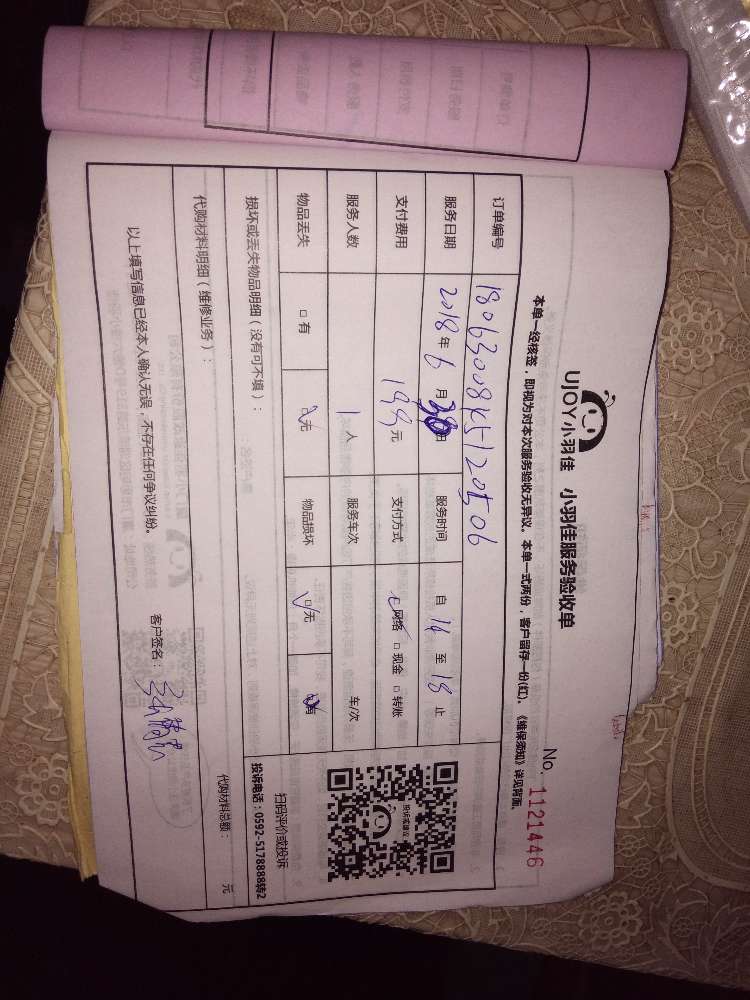 UJOY小羽佳 小羽佳服务验收单
No. 1121446
本单一经核签，即视为对本次服务验收无异议。本单一式两份，客户留存一份(红)。《维保须知》详见背面。
订单编号 1806300845120506
服务日期 2018年6月30日 服务时间 自 14 至 18 止
支付费用 199元 支付方式 ☑网络 □现金 □转账
服务人数 1人 服务车次 车/次
物品丢失 □有 ☑无 物品损坏 ☑无 □有
损坏或丢失物品明细（没有可不填）：
扫码评价或投诉
投诉电话：0592-5178888转2
投诉或建议
代购材料明细（维修业务）：
代购材料总额： 元
以上填写信息已经本人确认无误，不存在任何争议纠纷。
客户签名：